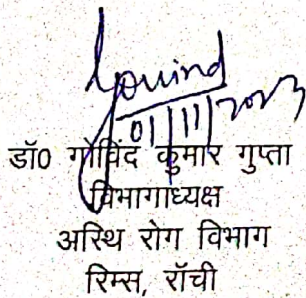 Govind
01/11/2023
डॉ0 गोविंद कुमार गुप्ता
विभागाध्यक्ष
अस्थि रोग विभाग
रिम्स, राँची